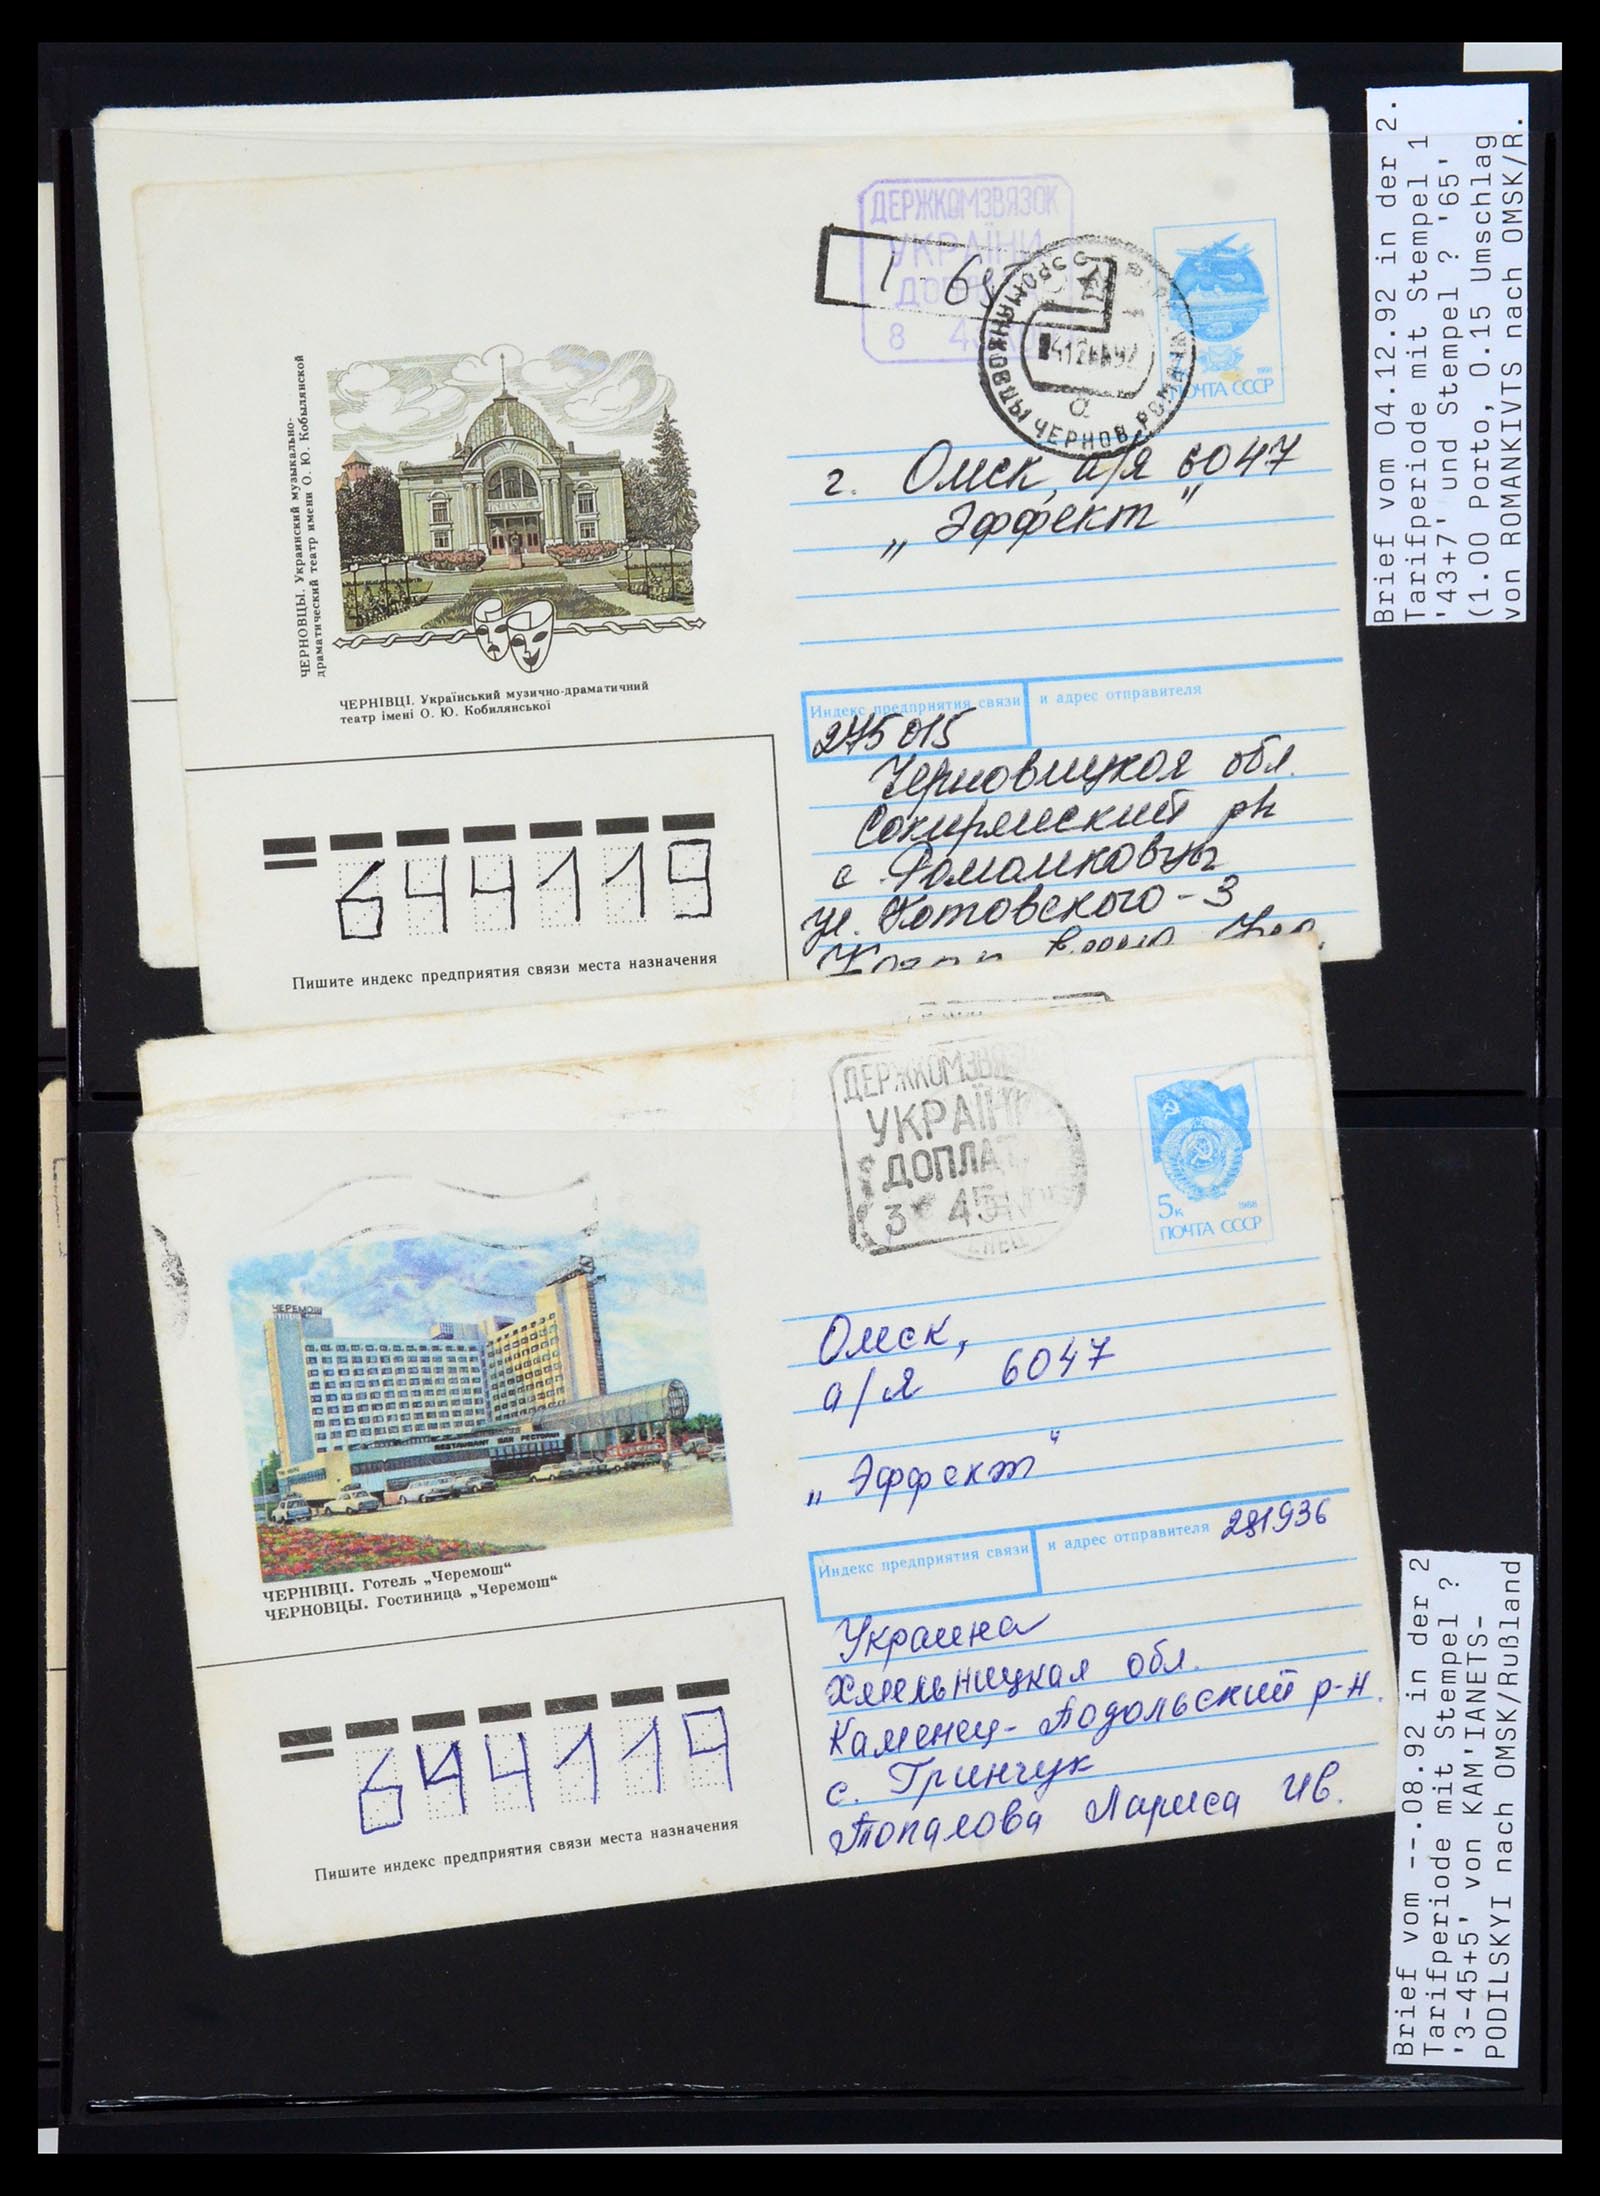 ДЕРЖКОМЗВЯЗОК
УКРАЇНИ
8 43
1 - 65
ЧЕРНОВ. РОМАНКОВЦЫ
ПОЧТА СССР
г. Омск, а/я 6047
„Эффект"
ЧЕРНОВЦЫ. Украинский музыкально-
драматический театр имени О. Ю. Кобылянской
ЧЕРНІВЦІ. Український музично-драматичний
театр імені О. Ю. Кобилянської
Индекс предприятия связи и адрес отправителя
275015
Черновицкая обл.
Сокирянский рн
с. Романковцы
ул. Котовского-3
644119
Пишите индекс предприятия связи места назначения
Brief vom 04.12.92 in der 2.
Tarifperiode mit Stempel 1
'43+7' und Stempel ? '65'
(1.00 Porto, 0.15 Umschlag
von ROMANKIVTS nach OMSK/R.
ДЕРЖКОМЗВЯЗ
УКРАЇН
ДОПЛАТ
3 45
5к 1988
ПОЧТА СССР
Омск,
а/я 6047
„Эффект"
ЧЕРЕМОШ
RESTAURANT BAR РЕСТОРАН
ЧЕРНІВЦІ. Готель „Черемош"
ЧЕРНОВЦЫ. Гостиница „Черемош"
Индекс предприятия связи и адрес отправителя 281936
Украина
Хмельницкая обл.
Каменец-Подольский р-н.
с. Гринчук
Топалова Лариса Ив.
644119
Пишите индекс предприятия связи места назначения
Brief vom --.08.92 in der 2
Tarifperiode mit Stempel ?
'3-45+5' von KAM'IANETS-
PODILSKYI nach OMSK/Rußland